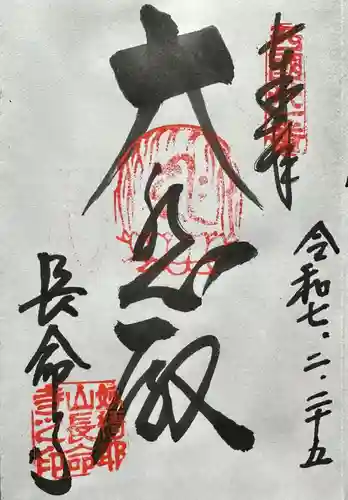 奉拝
令和七・二・二十五
大悲殿
長命寺
姨綺耶
山長命
寺之印